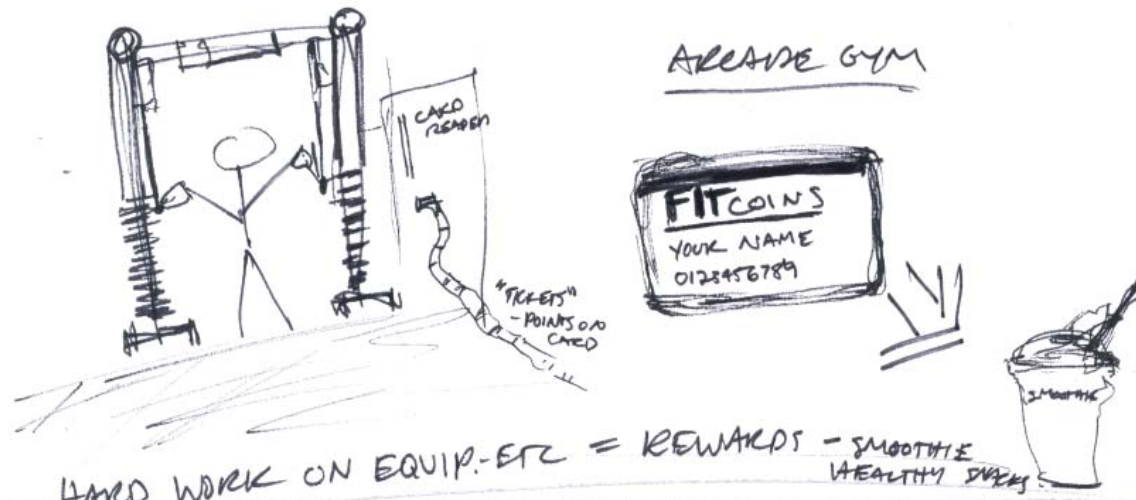 ARCADE GYM
CARD
READER
FITCOINS
YOUR NAME
0123456789
"TICKETS"
- POINTS ON
CARD
SMOOTHIE
HARD WORK ON EQUIP.-ETC = REWARDS - SMOOTHIE
HEALTHY SNACKS